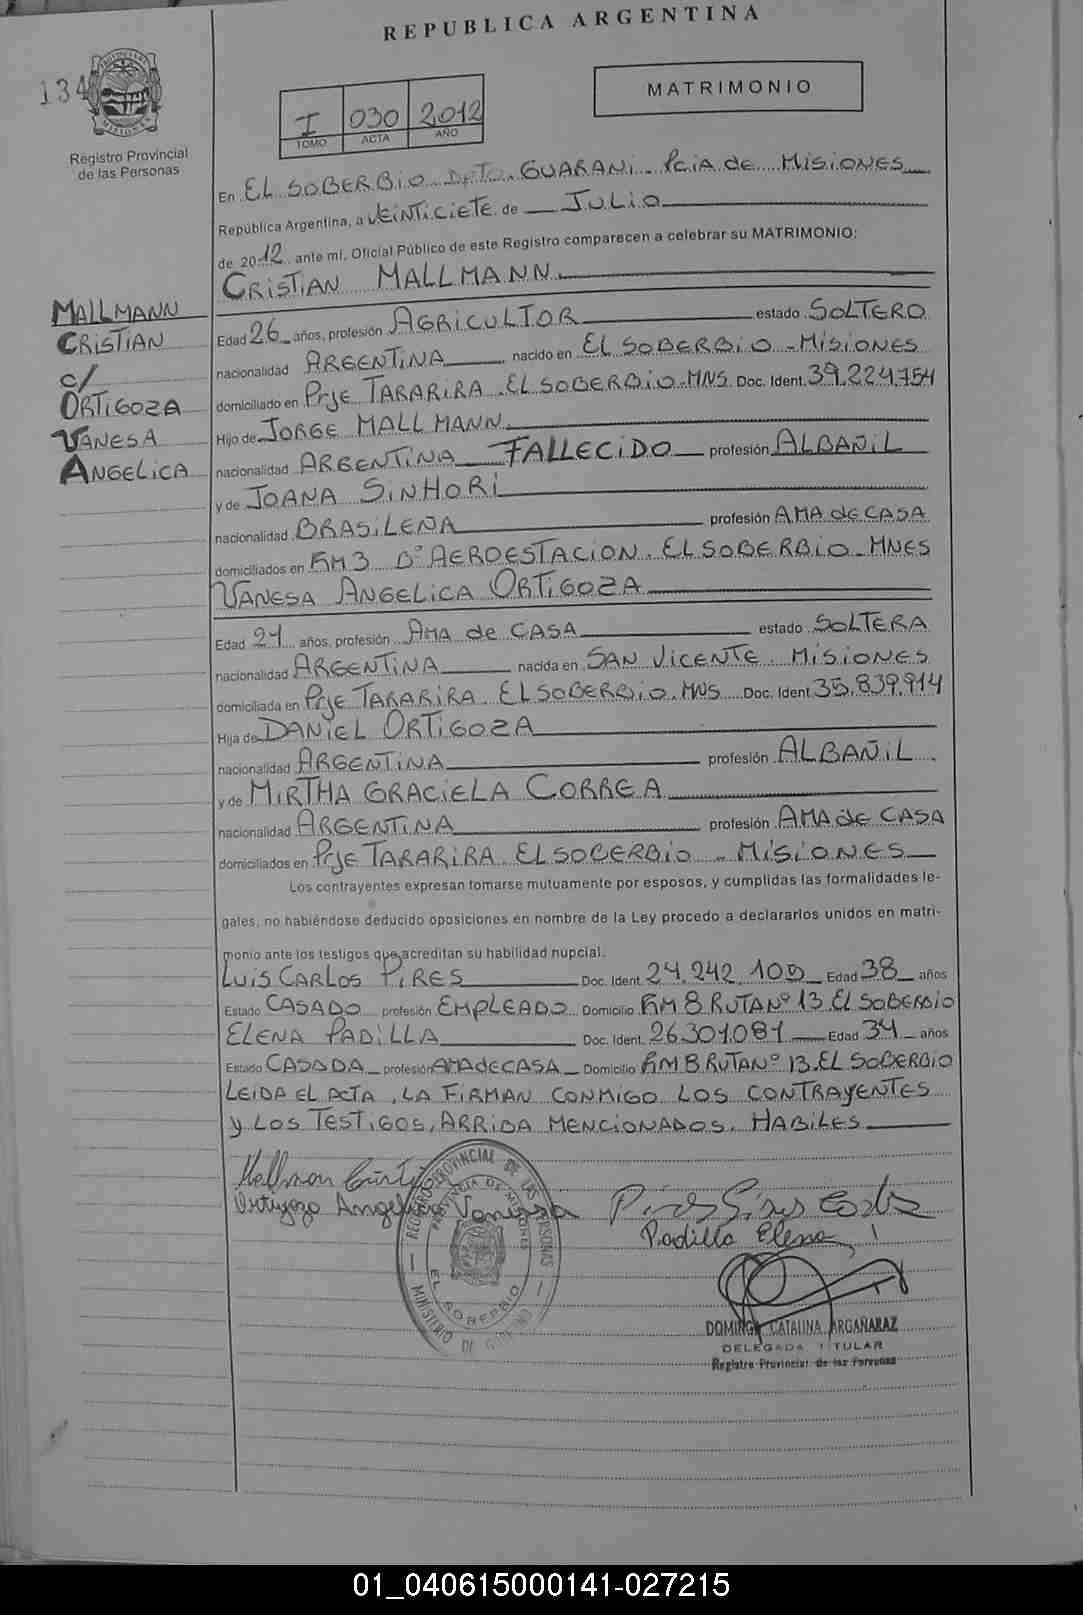 REPUBLICA ARGENTINA
134
Registro Provincial
de las Personas
MATRIMONIO
I 030 2012
TOMO ACTA AÑO
En EL SOBERBIO DPTO. GUARANI - PCIA de MISIONES
República Argentina, a VEINTICIETE de JULIO
de 2012 ante mí, Oficial Público de este Registro comparecen a celebrar su MATRIMONIO:
CRISTIAN MALLMANN
MALLMANN
CRISTIAN
c/
ORTIGOZA
VANESA
ANGELICA
Edad 26 años, profesión AGRICULTOR estado SOLTERO
nacionalidad ARGENTINA nacido en EL SOBERBIO - MISIONES
domiciliado en PrJE TARARIRA. EL SOBERBIO. MNS. Doc. Ident. 39.224.754
Hijo de JORGE MALLMANN
nacionalidad ARGENTINA FALLECIDO profesión ALBAÑIL
y de JOANA SINHORI
nacionalidad BRASILEÑA profesión AMA de CASA
domiciliados en KM 3 Bº AEROESTACION. EL SOBERBIO - MNES
VANESA ANGELICA ORTIGOZA
Edad 21 años, profesión AMA de CASA estado SOLTERA
nacionalidad ARGENTINA nacida en SAN VICENTE. MISIONES
domiciliada en PrJE TARARIRA. EL SOBERBIO. MNS Doc. Ident 35.839.914
Hija de DANIEL ORTIGOZA
nacionalidad ARGENTINA profesión ALBAÑIL.
y de MIRTHA GRACIELA CORREA
nacionalidad ARGENTINA profesión AMA de CASA
domiciliados en PrJE TARARIRA EL SOBERBIO - MISIONES
Los contrayentes expresan tomarse mutuamente por esposos, y cumplidas las formalidades le-
gales, no habiéndose deducido oposiciones en nombre de la Ley procedo a declararlos unidos en matri-
monio ante los testigos que acreditan su habilidad nupcial.
LUIS CARLOS PIRES Doc. Ident. 24.242.100 Edad 38 años
Estado CASADO profesión EMPLEADO Domicilio KM 8 RUTA Nº 13 EL SOBERBIO
ELENA PADILLA Doc. Ident. 26.301.081 Edad 34 años
Estado CASADA profesión AMA de CASA Domicilio KM 8 RUTA Nº 13. EL SOBERBIO
LEIDA EL ACTA, LA FIRMAN CONMIGO LOS CONTRAYENTES
y LOS TESTIGOS, ARRIBA MENCIONADOS. HABILES
Ortigoza Angelica Vanesa
Padilla Elena
REGISTRO PROVINCIAL DE LAS PERSONAS
PROVINCIA DE MISIONES
EL SOBERBIO
MINISTERIO DE GOBIERNO
DOMINGA CATALINA ARGAÑARAZ
DELEGADA TITULAR
Registro Provincial de las Personas
01_040615000141-027215